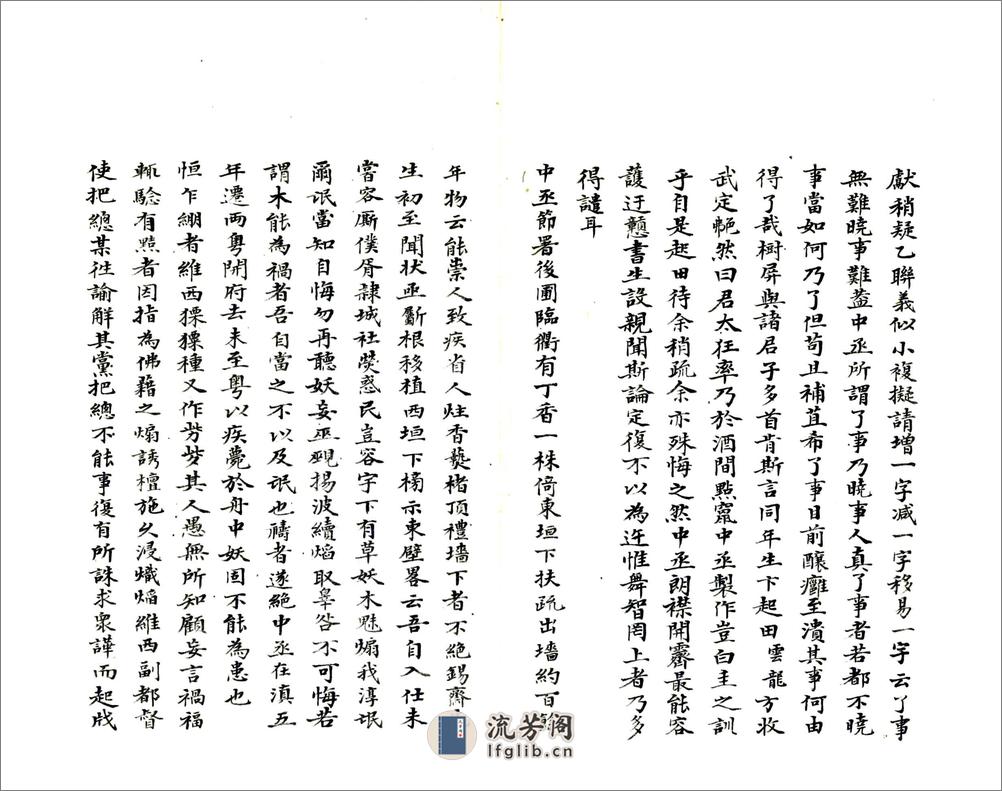 獻稍疑乙聯義似小複擬請增一字减一字移易一字云了事
無難曉事難蓋中丞所謂了事乃曉事人真了事者若都不曉
事當如何乃了但苟且補苴希了事目前釀癰至潰其事何由
得了哉樹屏與諸君子多首肯斯言同年生卞起田雲龍方收
武定艴然曰君太狂率乃於酒間點竄中丞製作豈白圭之訓
乎自是起田待余稍疏余亦殊悔之然中丞朗襟開霽最能容
護迂戇書生設親聞斯論定復不以為迕惟舞智罔上者乃多
得譴耳
中丞節署後圃臨衢有丁香一株倚東垣下扶疏出墻約百餘
年物云能祟人致疾省人炷香爇楮頂禮墻下者不絕錫齋
生初至聞狀亟斸根移植西垣下榜示東壁畧云吾自入仕未
嘗容廝僕胥隸城社熒惑民豈容宇下有草妖木魅煽我淳氓
爾氓當知自悔勿再聽妖妄巫覡揚波續焰取辠咎不可悔若
謂木能為禍者吾自當之不以及氓也禱者遂絕中丞在滇五
年遷兩粵開府去未至粵以疾薨於舟中妖固不能為患也
恒乍綳者維西猓猓種又作𫇭𫇭其人愚無所知顧妄言禍福
輒驗有黠者因指為佛藉之煽誘檀施久浸熾焰維西副都督
使把總某往諭解其黨把總不能事復有所誅求衆譁而起戕
流芳阁
lfglib.cn